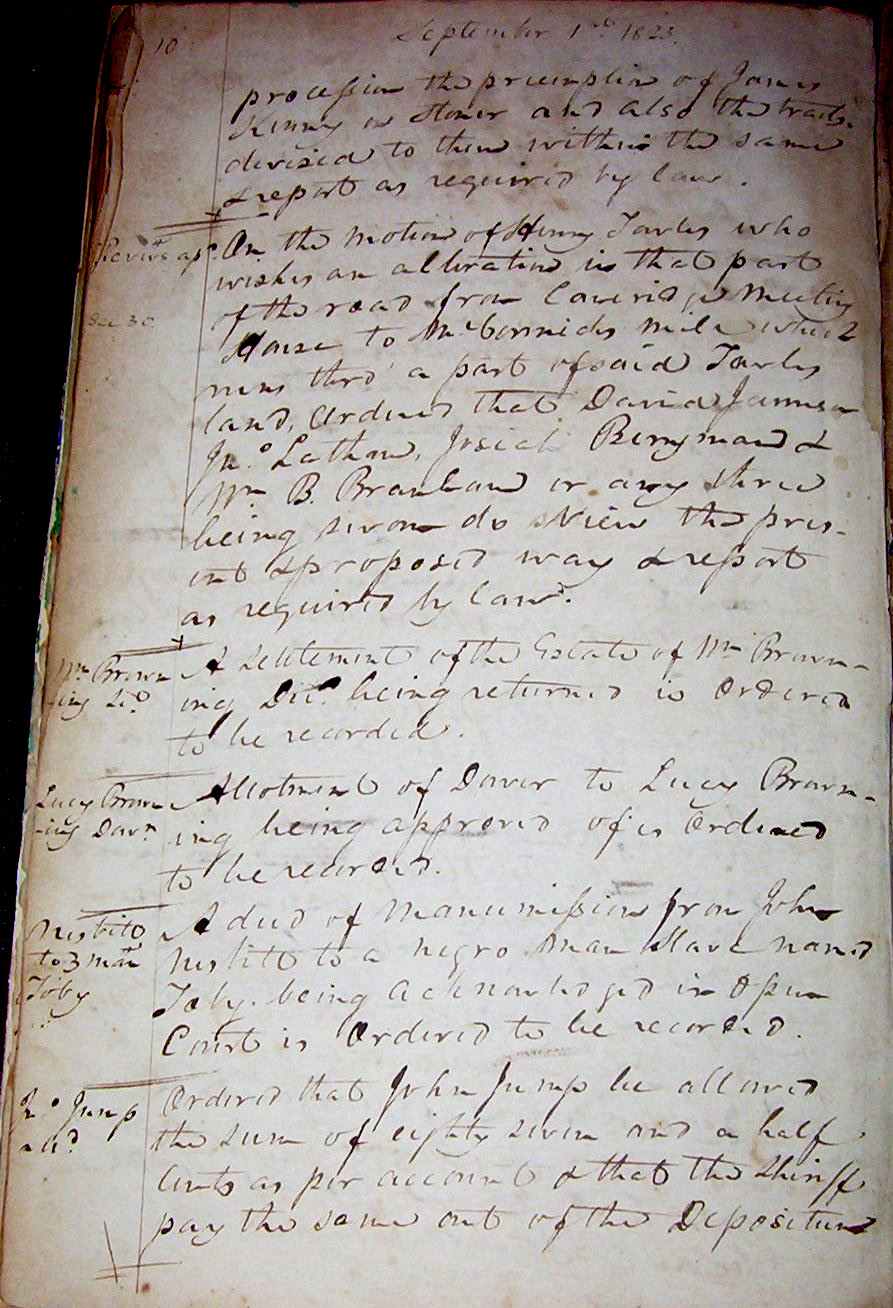 10
September 1st 1823.
procession the preemption of James
Kenny or Stoner and also the tracts
devised to them within the same
& report as required by law.
On the Motion of Henry Tarles who
wishes an alteration in that part
of the road from Caneridge Meeting
House to McCormicks Mile which
runs thro' a part of said Tarles
land, Ordered that David Jameson
Jno. Latham, Josiah Berryman &
Wm B. Branham or any three
being sworn do View the pres-
ent & proposed way & report
as required by law.
Wm Brown
-ing
A Settlement of the Estate of Wm Brown-
ing Decd. being returned is Ordered
to be recorded.
Lucy Brown
-ing Dowr
Allotment of Dower to Lucy Brown-
ing being approved of is Ordered
to be recorded.
Nesbit
to 3 man
Toby
A deed of Manumission from John
Nesbit to a negro man Slave named
Toby being acknowledged in Open
Court is Ordered to be recorded.
Jno. Jump
Ordered that John Jump be allowed
the sum of eighty seven and a half
Cents as per account & that the Sheriff
pay the same out of the Depositum